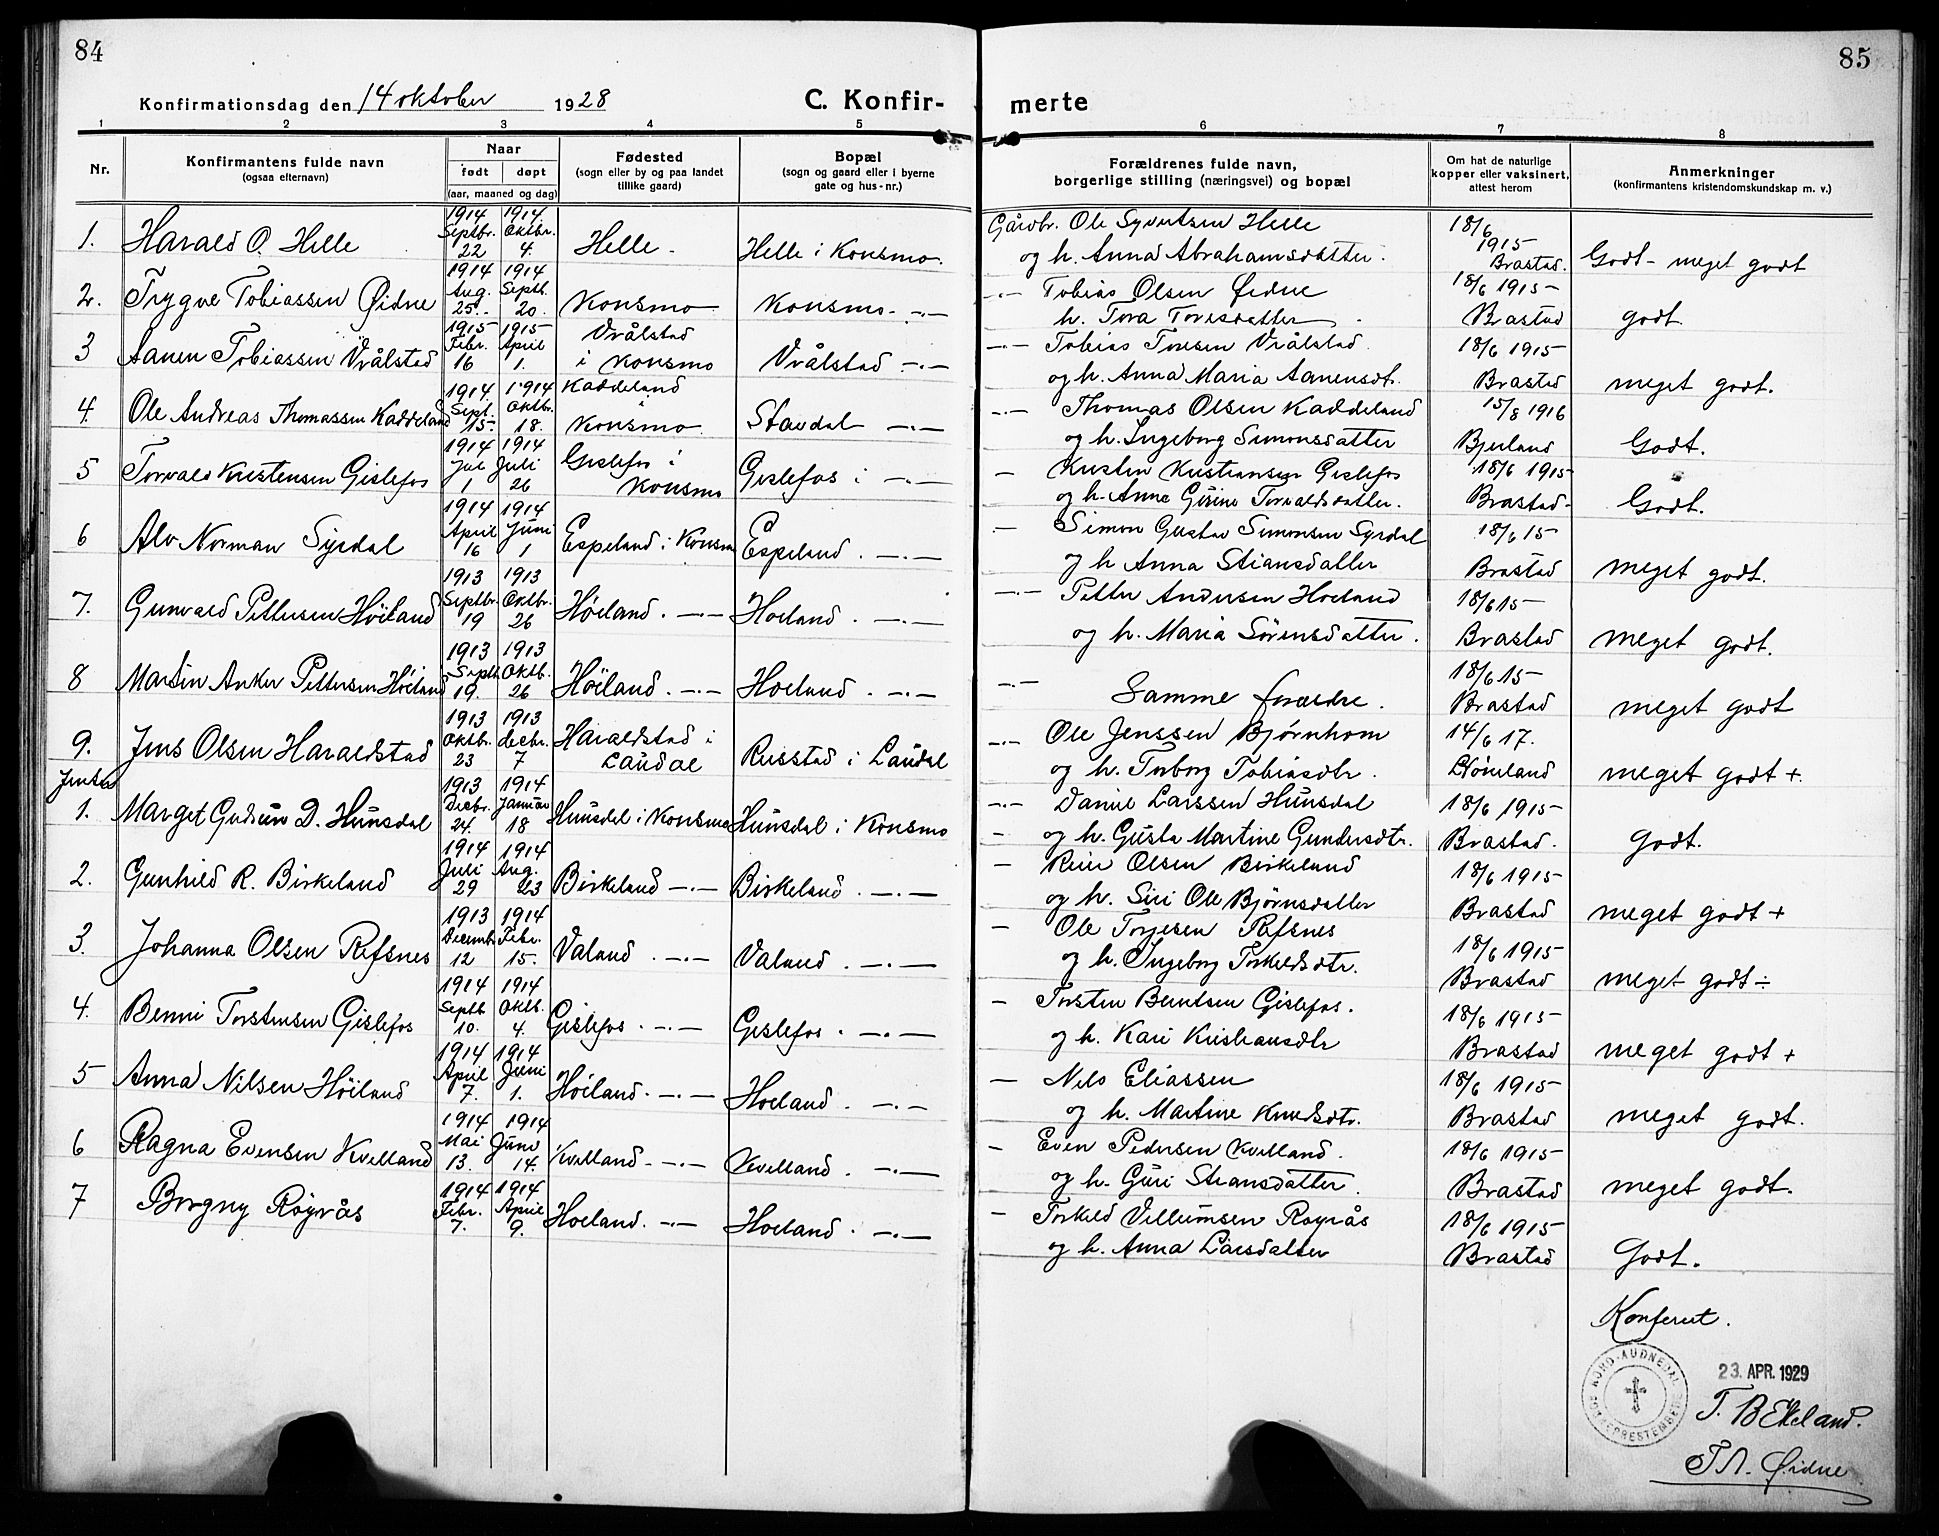 84
Konfirmationsdag den 14 oktober 1928
C. Konfir-
1 2 3 4 5
Nr.
Konfirmantens fulde navn
(ogsaa efternavn)
Naar
født døpt
(aar, maaned og dag)
Fødested
(sogn eller by og paa landet
tillike gaard)
Bopæl
(sogn og gaard eller i byerne
gate og hus-nr.)
1. Harald O. Helle 1914 Septbr. 22 1914 Oktbr. 4. Helle - Helle i Konsmo.
2. Trygve Tobiassen Øidne 1914 Aug. 25. 1914 Septb. 20. Konsmo Konsmo. -.-
3 Aanen Tobiassen Vrålstad 1915 Febr. 16 1915 April 1. Vrålstad i Konsmo Vrålstad -.-
4. Ole Andreas Thomassen Kaddeland 1914 Sept. 15. 1914 Oktbr. 18. Kaddeland i Konsmo. -.-
5 Torvald Kristensen Gislefos 1914 1 1914 Juli 26 Gislefos i Konsmo Gislefos i -.-
6 Alv Norman Syrdal 1914 April 16 1914 Juni 1 Espeland i Konsmo Espeland. -.-
7. Gunvald Pettersen Höiland 1913 Septbr. 19 1913 Oktbr. 26 Höiland. -.- Hoeland. -.-
8 Martin Anker Pettersen Höiland 1913 Septb. 19. 1913 Oktb. 26 Höiland. -.- Hoeland. -.-
9. Jens Olsen Haraldstad 1913 Oktbr. 23 1913 decbr. 7 Haraldstad i Laudal Risstad i Laudal
1. Marget Gudrun D. Hunsdal 1913 Decbr. 24. 1914 Januar 18 Hunsdal i Konsmo Hunsdal i Konsmo
2. Gunhild R. Birkeland 1914 Juli 29 1914 Aug. 23 Birkeland -.- Birkeland. -.-
3. Johanna Olsen Refsnes 1913 Decemb. 12 1914 Febr. 15. Valand. -.- Valand. -.-
4. Benni Torstensen Gislefos 1914 Septb 10. 1914 Oktb. 4. Gislefos. -.- Gislefos. -.-
5 Anna Nilsen Höiland 1914 April 7. 1914 Juni 1. Höiland. -.- Hoeland. -.-
6 Ragna Evensen Kvelland 1914 Mai 13. 1914 Juni 14. Kvelland. -.- Kvelland. -.-
7 Borgny Röyrås 1914 Febr. 7. 1914 April 9. Hoeland. -.- Hoeland. -.-
85
merte
6 7 8
Forældrenes fulde navn,
borgerlige stilling (næringsvei) og bopæl
Om hat de naturlige
kopper eller vaksinert,
attest herom
Anmerkninger
(konfirmantens kristendomskundskap m. v.)
Gårdbr. Ole Syvertsen Helle 18/6
og h. Anna Abrahamsdatter. 1915 Brastad. Godt - meget godt
-.- Tobias Olsen Øidne 18/6 1915
h. Tora Brastad godt.
-.- Tobias Vrålstad. 18/6 1915
og h. Anna Maria Aanensdtr. Brastad meget godt.
-.- Thomas Olsen Kaddeland 15/8 1916
og h. Ingeborg Simonsdatter Bjerland Godt.
- Kristen Kristiansen Gislefos 18/6 1915
og h. Anne Torvaldsdatter. Brastad. Godt.
- Simon Gustav Simonsen Syrdal 18/6 15
og h Anna Stiansdatter Brastad meget godt.
-.- Petter Andersen Hoeland 18/6 15
og h. Maria Sörensdatter. Brastad meget godt.
-.- 18/6 15
Samme forældre. Brastad meget godt
-.- Ole Jenssen Bjørnhom 14/6 17.
og h. Torborg Tobiasdtr. meget godt +
-.- Daniel Larssen Hunsdal 18/6 1915
og h. Gusta Martine Gundersdtr. Brastad. godt.
- Reier Olsen Birkeland 18/6 1915
og h. Siri Ole Bjørnsdatter Brastad meget godt +
- Ole Torjesen Refsnes 18/6 1915
og h. Ingeborg Torkeldsdtr. Brastad meget godt ÷
- Torsten Berntsen Gislefos. 18/6 1915
og h. Kari Kristiansdtr Brastad meget godt +
- Nils Eliassen 18/6 1915
og h. Martine Knudsdtr. Brastad meget godt.
- Even Pedersen Kvelland. 18/6 1915
og h. Guri Stiansdatter. Brastad meget godt.
- Torkild Villumsen Royrås 18/6 1915
og h. Anna Larsdatter Brastad Godt.
Konferert.
NORD-AUDNEDAL SOKNEPRESTEMBEDE
23. APR. 1929
T. B Ekeland.
T A. Øidne